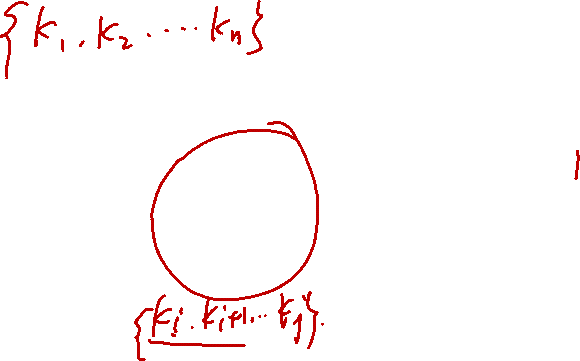 {k₁, k₂ ····· kₙ}
{kᵢ, kᵢ₊₁... kⱼ}.